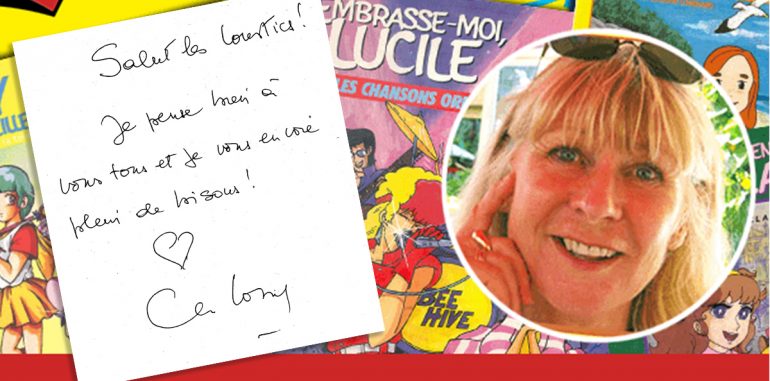 Salut les Loustics !
Je pense bien à
vous tous et je vous envoie
plein de bisous !
EMBRASSE-MOI,
LUCILE
LES CHANSONS OR
BEE
HIVE